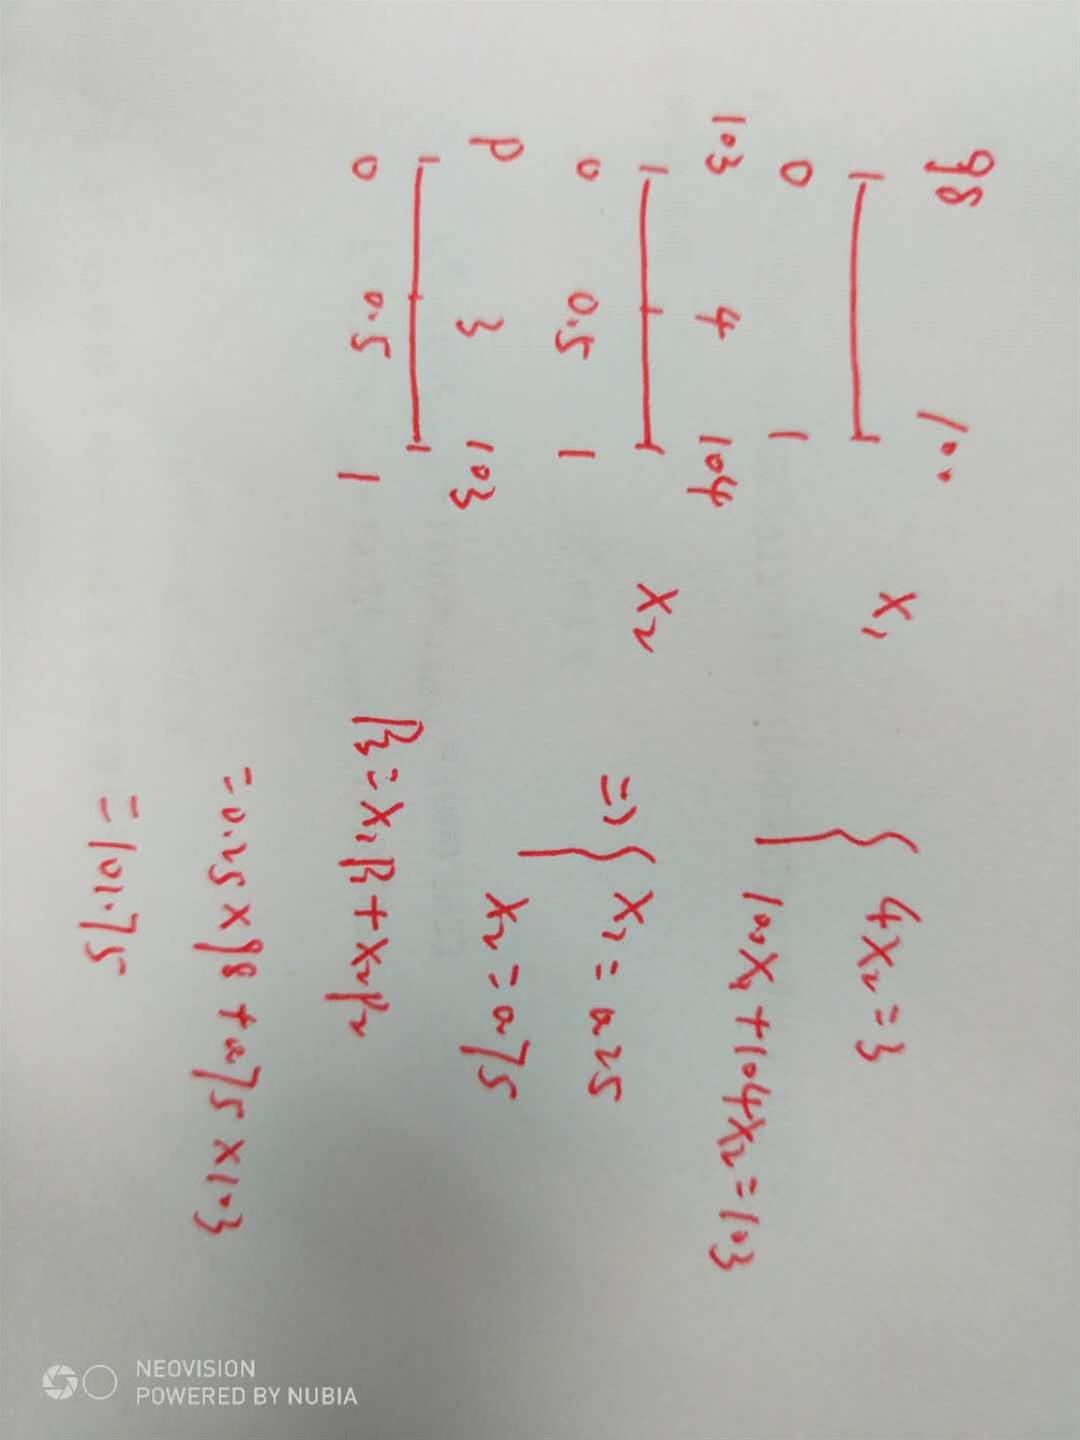 98 100 x₁
0 1
103 4 104 x₂
0 0.5 1
P 3 103
0 0.5 1
{ 4x₂ = 3
100x₁ + 104x₂ = 103
=> { x₁ = 0.25
x₂ = 0.75
P₃ = x₁P₁ + x₂P₂
= 0.25 × 98 + 0.75 × 103
= 101.75
NEOVISION
POWERED BY NUBIA